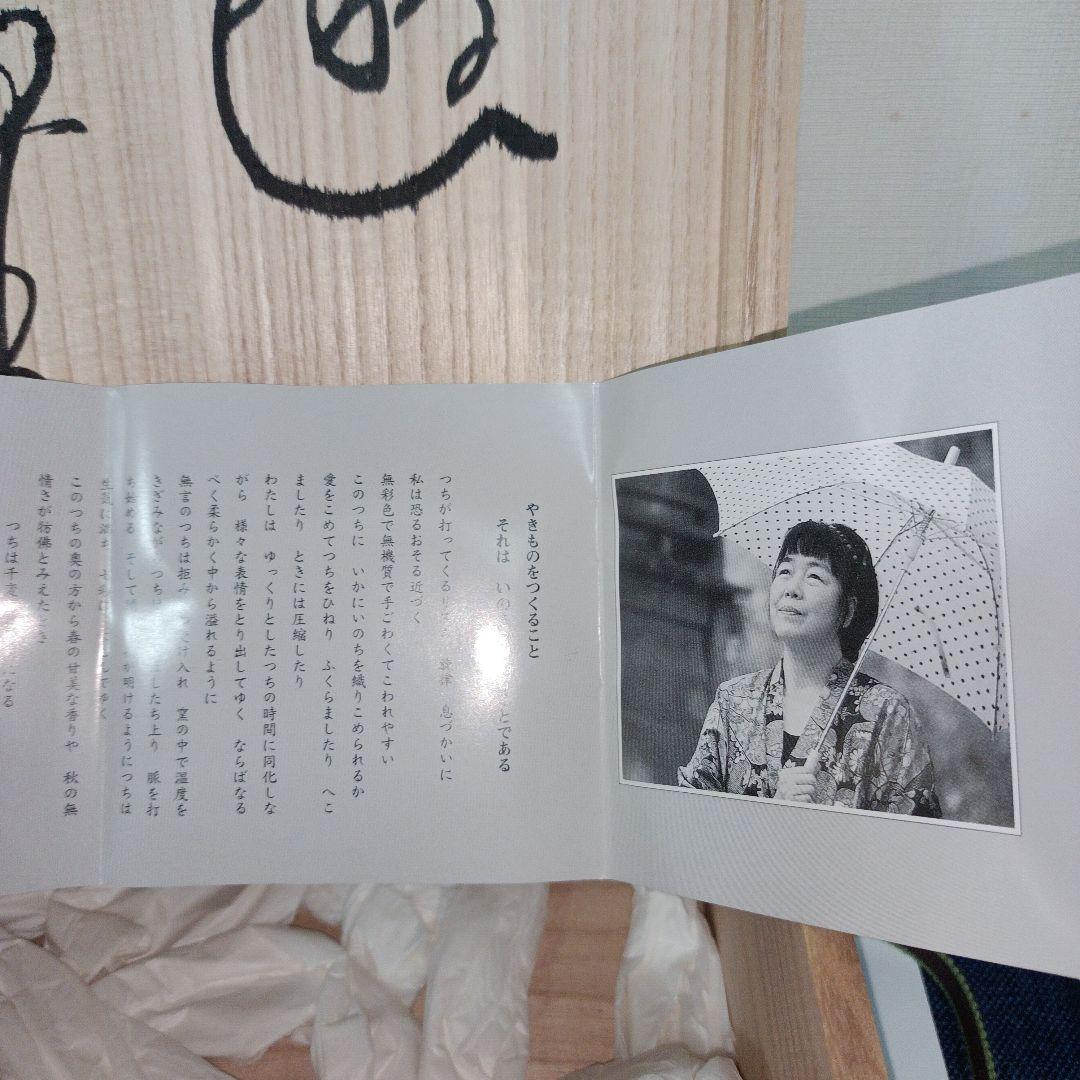 やきものをつくること
それは いの とである
つちが打ってくる 息づかいに
私は恐るおそる近づく
無彩色で無機質で手ごわくてこわれやすい
このつちに いかにいのちを織りこめられるか
愛をこめてつちをひねり ふくらましたり へこ
ましたり ときには圧縮したり
わたしは ゆっくりとしたつちの時間に同化しな
がら 様々な表情をとり出してゆく ならばなる
べく柔らかく中から溢れるように
無言のつちは拒み け入れ 窯の中で温度を
きざみながら つちは したち上り 脈を打
ち始める そして が明けるようにつちは
生気に
このつちの奥の方から春の甘美な香りや 秋の無
情さが彷彿とみえたとき
つちは千 になる